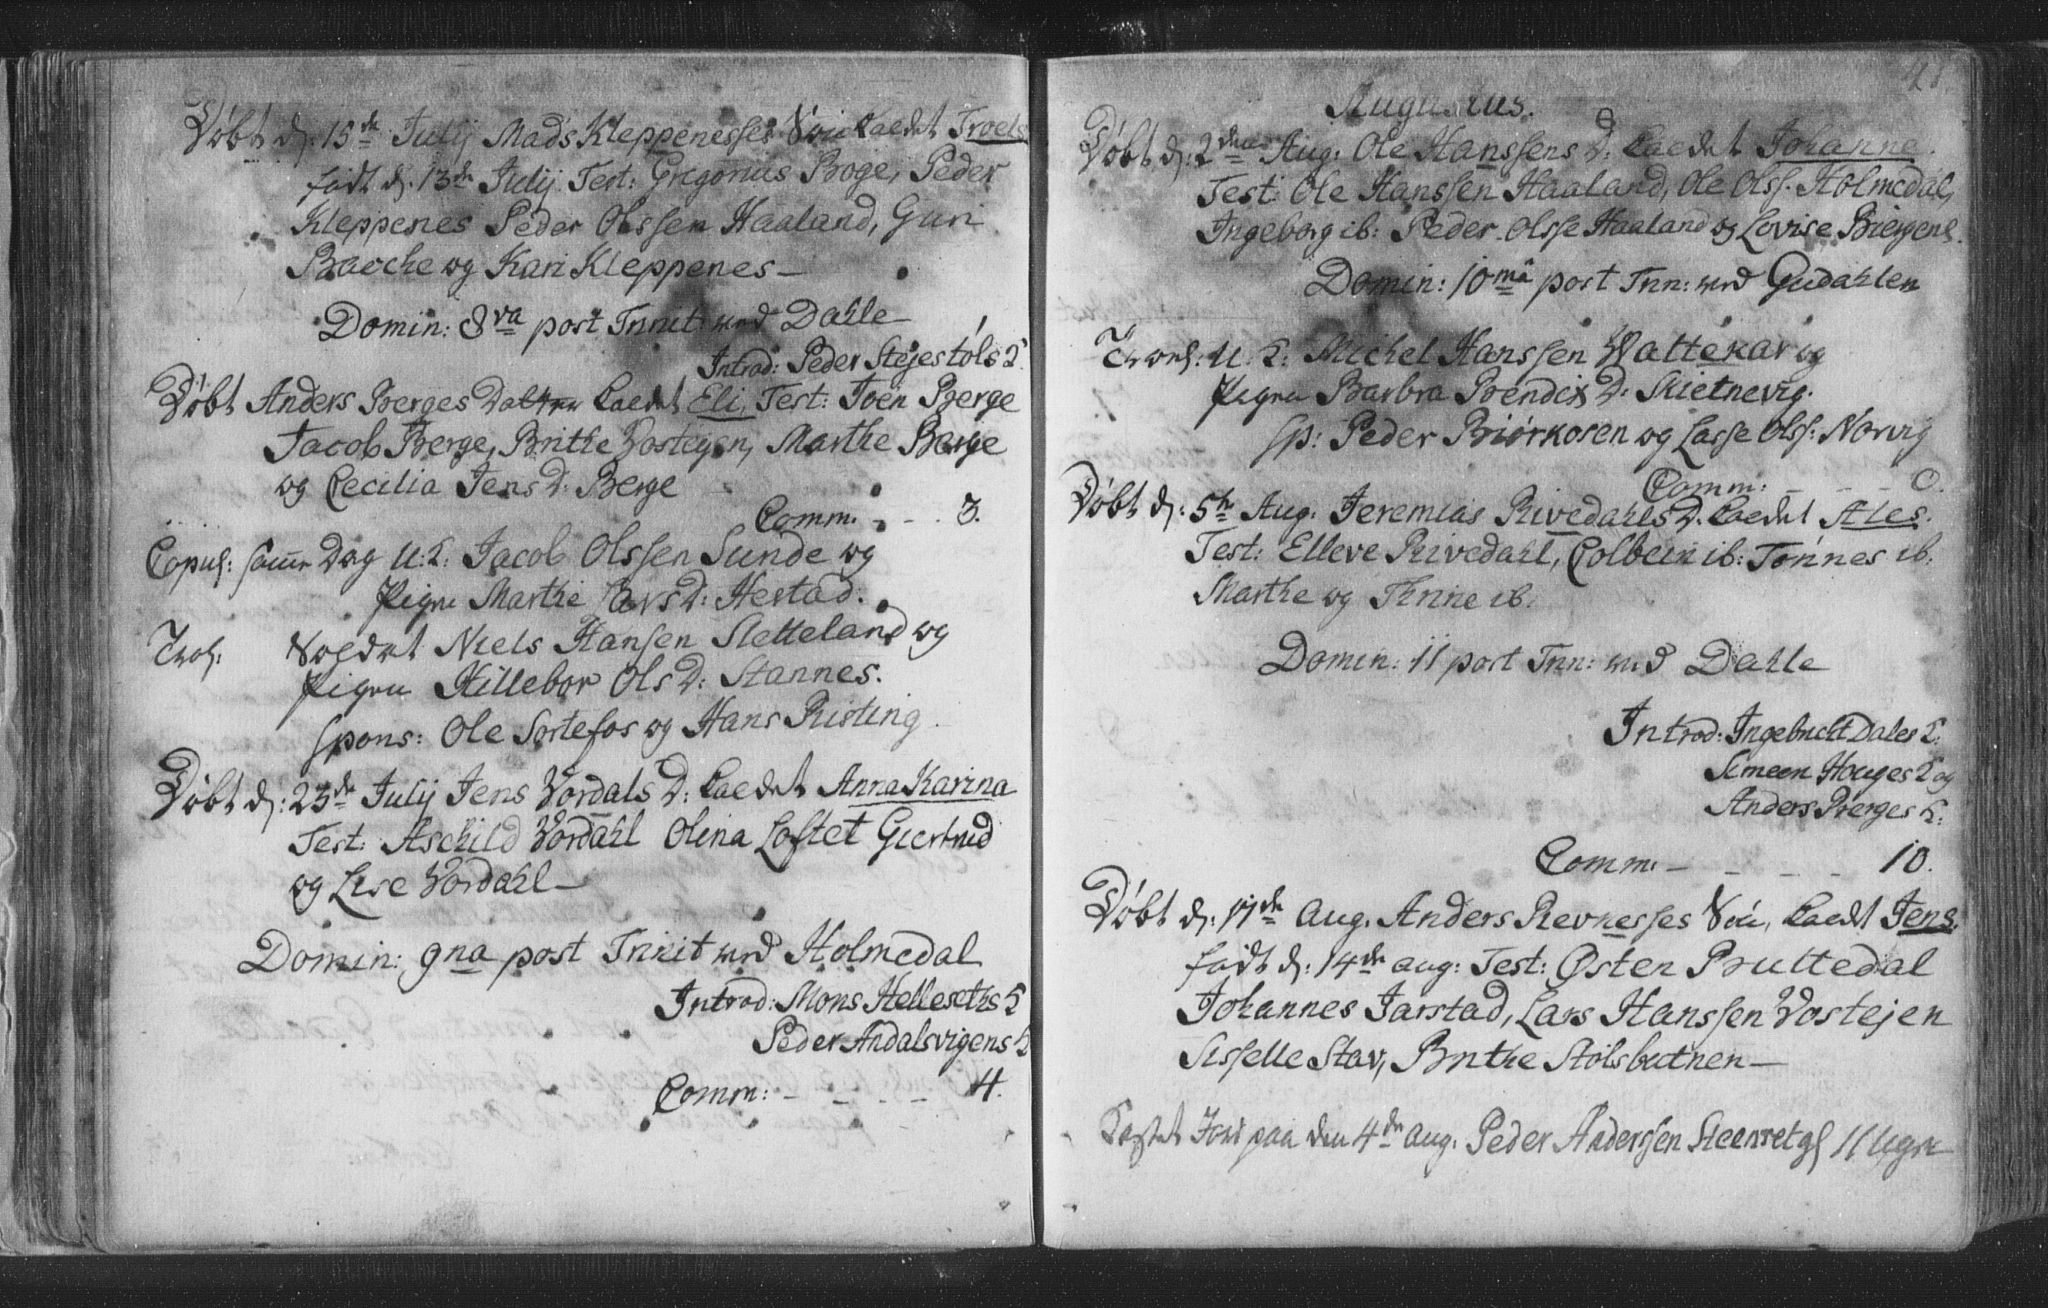 Døbt d: 15de Julij Mads Kleppenesses Søn kaldet Troels
født d. 13de Julij. Test: Gregorius Boge, Peder
Kleppenes Peder Olssen Haaland, Guri
Bacche og Kari Kleppenes —
Domin: 8va post Trinit: ved Dahle
Introd: Peder Stejestøls K.
Døbt Anders Berges Datter kaldet Eli, Test: Joen Berge
Jacob Berge, Brithe Vostejen, Marthe Berge
og Cecilia Jens D: Berge
Comm. - - - 3.
Copul: samme Dag U: K: Jacob Olssen Sunde og
Pigen Marthe Lars D: Hestad.
Trol: Soldat Niels Hansen Sletteland og
Pigen Hillebor Ols D: Stannes.
Spons: Ole Sortefos og Hans Risting
Døbt d: 23de Julij Jens Vordals D: kaldet Anna Karina
Test: Aschild Vordahl Olina Loftet Giertrud
og Lise Vordahl —
Domin: 9na post Trinit ved Holmedal
Introd: Mons Helleseths K
Peder Andalsvigens K
Comm: - - - - 4.
Augustus.
Døbt d: 2den Aug: Ole Hanssens D: kaldet Johanne.
Test: Ole Hanssen Haaland, Ole Olss. Holmedal,
Ingeborg ib: Peder Olsse Haaland og Lovise
Domin: 10ma post Trin: ved Gudahlen
Trol: U: K: Michel Hanssen Vattekar og
Pigen Barbra Bendix D: Skietnevig.
Sp: Peder Biørkosen og Lasse Olss: Norvig
Comm: - - - 0.
Døbt d: 5te Aug. Jeremias Rivedahls D. kaldet Ales.
Test: Elleve Rivedahl, Colbein ib: Tønnes ib.
Marthe og Thrine ib.
Domin: 11 post Trin: ved Dahle
Introd: Ingebricht Dales K:
Simeen Houges K og
Anders Berges K:
Comm: - - - - 10.
Døbt d: 17de Aug. Anders Revnesses Søn, kaldt Jens.
født d: 14de aug: Test: Østen Bruttedal
Johannes Jarstad, Lars Hanssen Vostejen
Sisselle Stav, Brithe Stølsbotnen —
Kastet Jord paa den 4de aug. Peder Anderssen Steenset gl 11 Uger